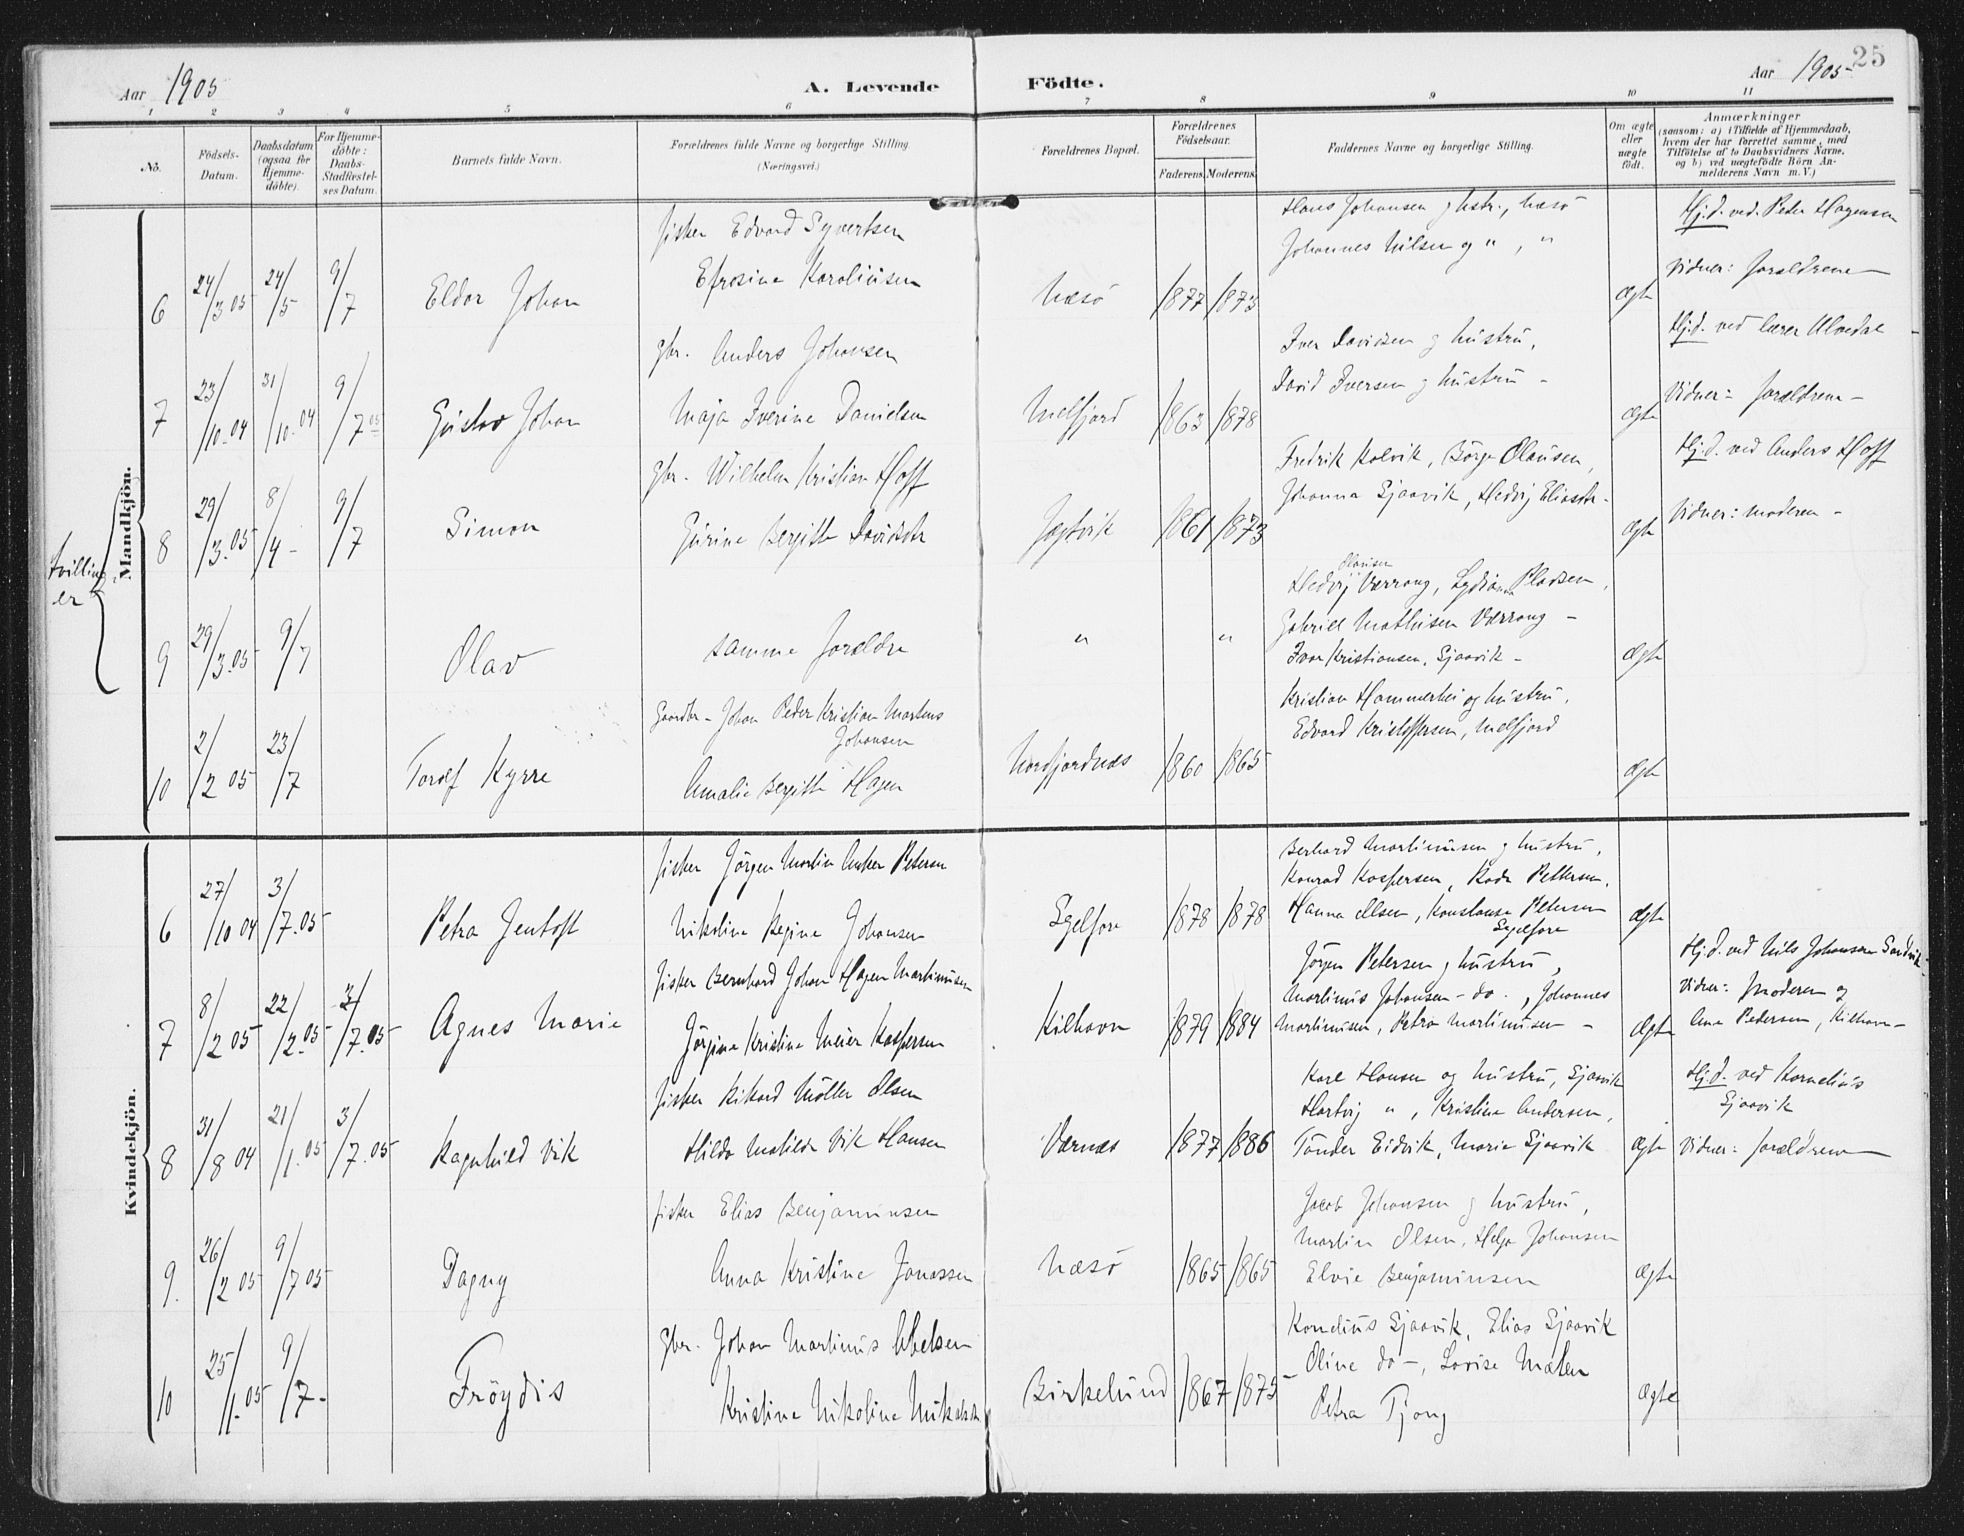 25
Aar 1905
A. Levende
Födte.
Aar 1905
1 2 3 4 5 6 7 8 9 10 11
No.
Födsels-
Datum.
Daabsdatum
(ogsaa for
Hjemme-
döbte).
For Hjemme-
döbte:
Daabs-
Stadfæstel-
ses Datum.
Barnets fulde Navn.
Forældrenes fulde Navne og borgerlige Stilling
(Næringsvei.)
Forældrenes Bopæl.
Forældrenes
Födselsaar.
Faderens. Moderens.
Faddernes Navne og borgerlige Stilling.
Om ægte
eller
uægte
födt.
Anmærkninger
(saasom: a) i Tilfælde af Hjemmedaab,
hvem der har forrettet samme, med
Tilföielse af to Daabsvidners Navne,
og b) ved uægtefödte Börn An-
melderens Navn m. V.)
Mandkjön.
tvilling
er
6 24/3 05 24/5 9/7 Eldor Johan
fisker Edvard Syvertsen
Efrosine Karolinisen
Næsö 1877 1873
Hans Johansen og hstr., Næsö
Johannes Nilsen og " , "
ægte
Hj.d. ved Peder Hagensen
Vidner: forældrene
7 23/10-04 31/10-04 9/7 05 Gustav Johan
gbr. Anders Johansen
Maja Iverine Danielsen
Melfjord 1863 1878
Iver Davidsen og hustru,
David Iversen og hustru -
ægte
Hj.d. ved lærer Alvedal
Vidner: forældrene -
8 29/3.05 8/4 - 9/7 Simon
gbr. Wilhelm Kristian Hoff
Gurine Bergitte Davidsdtr
Jægtvik 1861 1873
Fredrik Kolvik, Börge Olausen,
Johanna Sjaavik, Hedvig Eliasdtr-
ægte
Hj.d. ved Anders Hoff
Vidner: moderen -
9 29/3.05 9/7 Olav
samme forældre
" "
Olausen
Hedvig Værrang, Lydianna Olavsen,
Gabriel Mathisen Værrang -
Ivar Kristiansen, Sjaavik -
ægte
10 2/2 05 23/7 Torolf Kyrre
Gaardbr - Johan Peder Kristian Martens
Johansen
Amalie Bergitte Hagen
Nordfjordnæs 1860 1865
Kristian Hammerhei og hustru,
Edvard Kristoffersen, Melfjord
ægte
Kvindekjön.
6 27/10 04 3/7.05 Petra Jentoft
fisker Jörgen Martin Anker Petersen
Nikoline Regine Johansen
Selfore 1878 1878
Berhard Martinusen og hustru,
Konrad Kaspersen, Kada Pettersen,
Hanna Olsen, Konstanse Petersen
Segelfore
ægte
7 8/2 05 22/2.05 3/7.05 Agnes Marie
fisker Bernhard Johan Hagen Martinusen
Jörgine Kristine Meier Kaspersen
Kilhavn 1879 1884
Jörgen Petersen og hustru,
Martinus Johansen - do., Johannes
Martinusen, Petra Martinusen -
ægte
Hj.d. ved Nils Johansen Sandvik
Vidner: Moderen og
Ane Pedersen, Kilhavn -
8 31/8 04 21/1.05 3/7.05 Ragnhild Vik
fisker Rikard Möller Olsen
Hilda Matilde Vik Hansen
Værnæs 1877 1886
Karl Hansen og hustru, Sjaavik
Hartvig " , Kristine Andersen,
Tönder Eidvik, Marie Sjaavik
ægte
Hj.d. ved Kornelius
Sjaavik
Vidner: forældrene
9. 26/2 05 9/7 05 Dagny
fisker Elias Benjaminsen
Anna Kristine Jonassen
Næsö 1865 1865
Jacob Johansen og hustru,
Martin Olsen, Helga Johansen
Elvie Benjaminsen
ægte
10 25/1.05 9/7- Fröydis
Gbr. Johan Martinus Abelsen
Kristine Nikoline Nikolaisdtr
Birkelund 1867 1875
Kornelius Sjaavik, Elias Sjaavik
Oline do -, Lovise Mælen
Petra Tjong
ægte